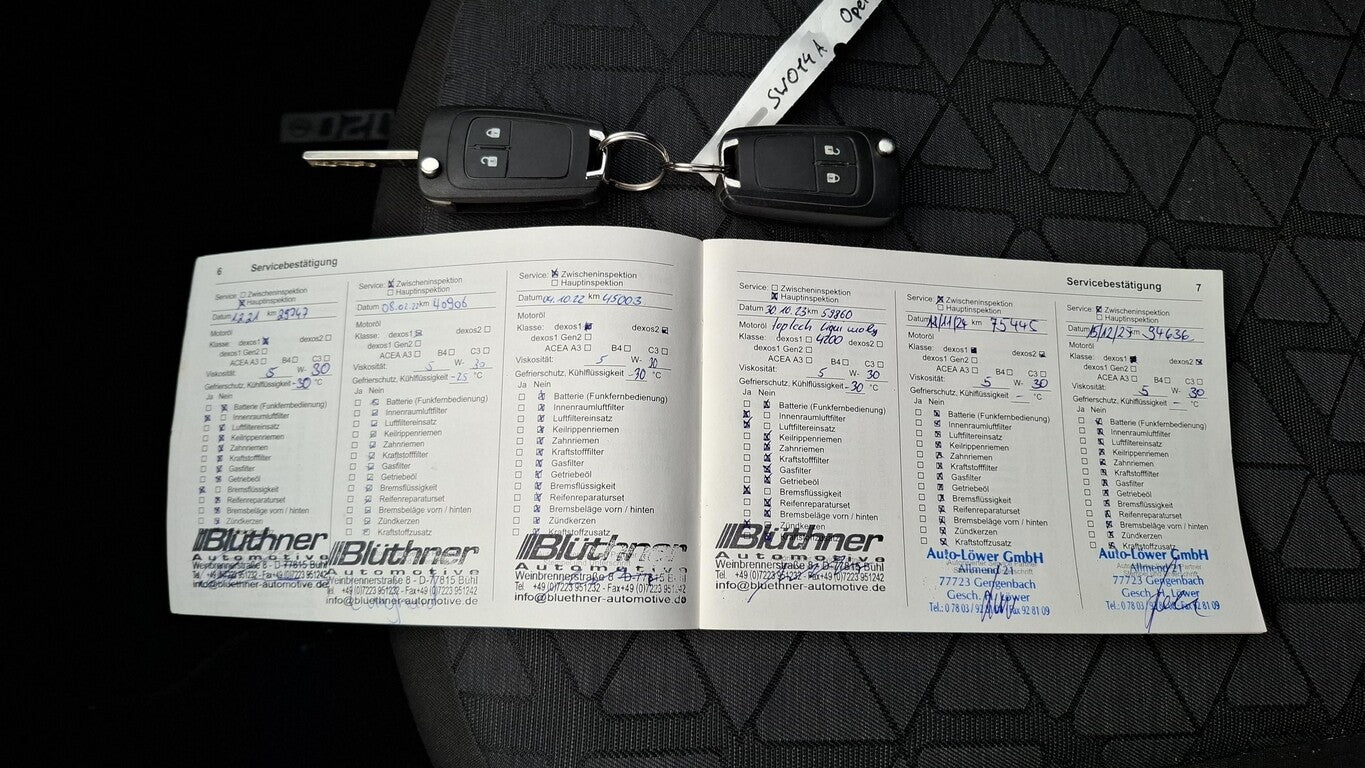 Opel
SW014A
6 Servicebestätigung
Service: Zwischeninspektion
Hauptinspektion
Datum 12.21 km 29747
Motoröl
Klasse: dexos1 dexos2
dexos1 Gen2
ACEA A3 B4 C3
Viskosität: 5 W- 30
Gefrierschutz, Kühlflüssigkeit -30 °C
Ja Nein
Batterie (Funkfernbedienung)
Innenraumluftfilter
Luftfiltereinsatz
Keilrippenriemen
Zahnriemen
Kraftstofffilter
Gasfilter
Getriebeöl
Bremsflüssigkeit
Reifenreparaturset
Bremsbeläge vorn / hinten
Zündkerzen
Blüthner
Automotive
Weinbrennerstraße 8 - D-77815 Bühl
info@bluethner-automotive.de
Service: Zwischeninspektion
Hauptinspektion
Datum 08.02.22 km 40906
Motoröl
Klasse: dexos1 dexos2
dexos1 Gen2
ACEA A3 B4 C3
Viskosität: 5 W- 30
Gefrierschutz, Kühlflüssigkeit -25 °C
Ja Nein
Batterie (Funkfernbedienung)
Innenraumluftfilter
Luftfiltereinsatz
Keilrippenriemen
Zahnriemen
Kraftstofffilter
Gasfilter
Getriebeöl
Bremsflüssigkeit
Reifenreparaturset
Bremsbeläge vorn / hinten
Zündkerzen
Kraftstoffzusatz
Blüthner
Automotive
Weinbrennerstraße 8 - D-77815 Bühl
Tel. +49 (0)7223 951232 - Fax+49 (0)7223 951242
info@bluethner-automotive.de
Service: Zwischeninspektion
Hauptinspektion
Datum 04.10.22 km 45003
Motoröl
Klasse: dexos1 dexos2
dexos1 Gen2
ACEA A3 B4 C3
Viskosität: 5 W- 30
Gefrierschutz, Kühlflüssigkeit -30 °C
Ja Nein
Batterie (Funkfernbedienung)
Innenraumluftfilter
Luftfiltereinsatz
Keilrippenriemen
Zahnriemen
Kraftstofffilter
Gasfilter
Getriebeöl
Bremsflüssigkeit
Reifenreparaturset
Bremsbeläge vorn / hinten
Zündkerzen
Kraftstoffzusatz
Blüthner
Automotive
Weinbrennerstraße 8 - D-77815 Bühl
Tel. +49 (0)7223 951232 - Fax+49 (0)7223 951242
info@bluethner-automotive.de
Servicebestätigung 7
Service: Zwischeninspektion
Hauptinspektion
Datum 30.10.23 km 59860
Motoröl toptech liqui moly
Klasse: dexos1 4200 dexos2
dexos1 Gen2
ACEA A3 B4 C3
Viskosität: 5 W- 30
Gefrierschutz, Kühlflüssigkeit -30 °C
Ja Nein
Batterie (Funkfernbedienung)
Innenraumluftfilter
Luftfiltereinsatz
Keilrippenriemen
Zahnriemen
Kraftstofffilter
Gasfilter
Getriebeöl
Bremsflüssigkeit
Reifenreparaturset
Bremsbeläge vorn / hinten
Zündkerzen
Blüthner
Automotive
Weinbrennerstraße 8 - D-77815 Bühl
Tel. +49 (0)7223 951232 - Fax+49 (0)7223 951242
info@bluethner-automotive.de
Service: Zwischeninspektion
Hauptinspektion
Datum 12/11/24 km 75445
Motoröl
Klasse: dexos1 dexos2
dexos1 Gen2
ACEA A3 B4 C3
Viskosität: 5 W- 30
Gefrierschutz, Kühlflüssigkeit - °C
Ja Nein
Batterie (Funkfernbedienung)
Innenraumluftfilter
Luftfiltereinsatz
Keilrippenriemen
Zahnriemen
Kraftstofffilter
Gasfilter
Getriebeöl
Bremsflüssigkeit
Reifenreparaturset
Bremsbeläge vorn / hinten
Zündkerzen
Kraftstoffzusatz
Auto-Löwer GmbH
Allmend 21
77723 Gengenbach
Gesch. H. Löwer
Fax 92 81 09
Service: Zwischeninspektion
Hauptinspektion
Datum km 94636
Motoröl
Klasse: dexos1 dexos2
dexos1 Gen2
ACEA A3 B4 C3
Viskosität: 5 W- 30
Gefrierschutz, Kühlflüssigkeit - °C
Ja Nein
Batterie (Funkfernbedienung)
Innenraumluftfilter
Luftfiltereinsatz
Keilrippenriemen
Zahnriemen
Kraftstofffilter
Gasfilter
Getriebeöl
Bremsflüssigkeit
Reifenreparaturset
Bremsbeläge vorn / hinten
Zündkerzen
Kraftstoffzusatz
Auto-Löwer GmbH
Allmend 21
77723 Gengenbach
Gesch. H. Löwer
Fax 92 81 09